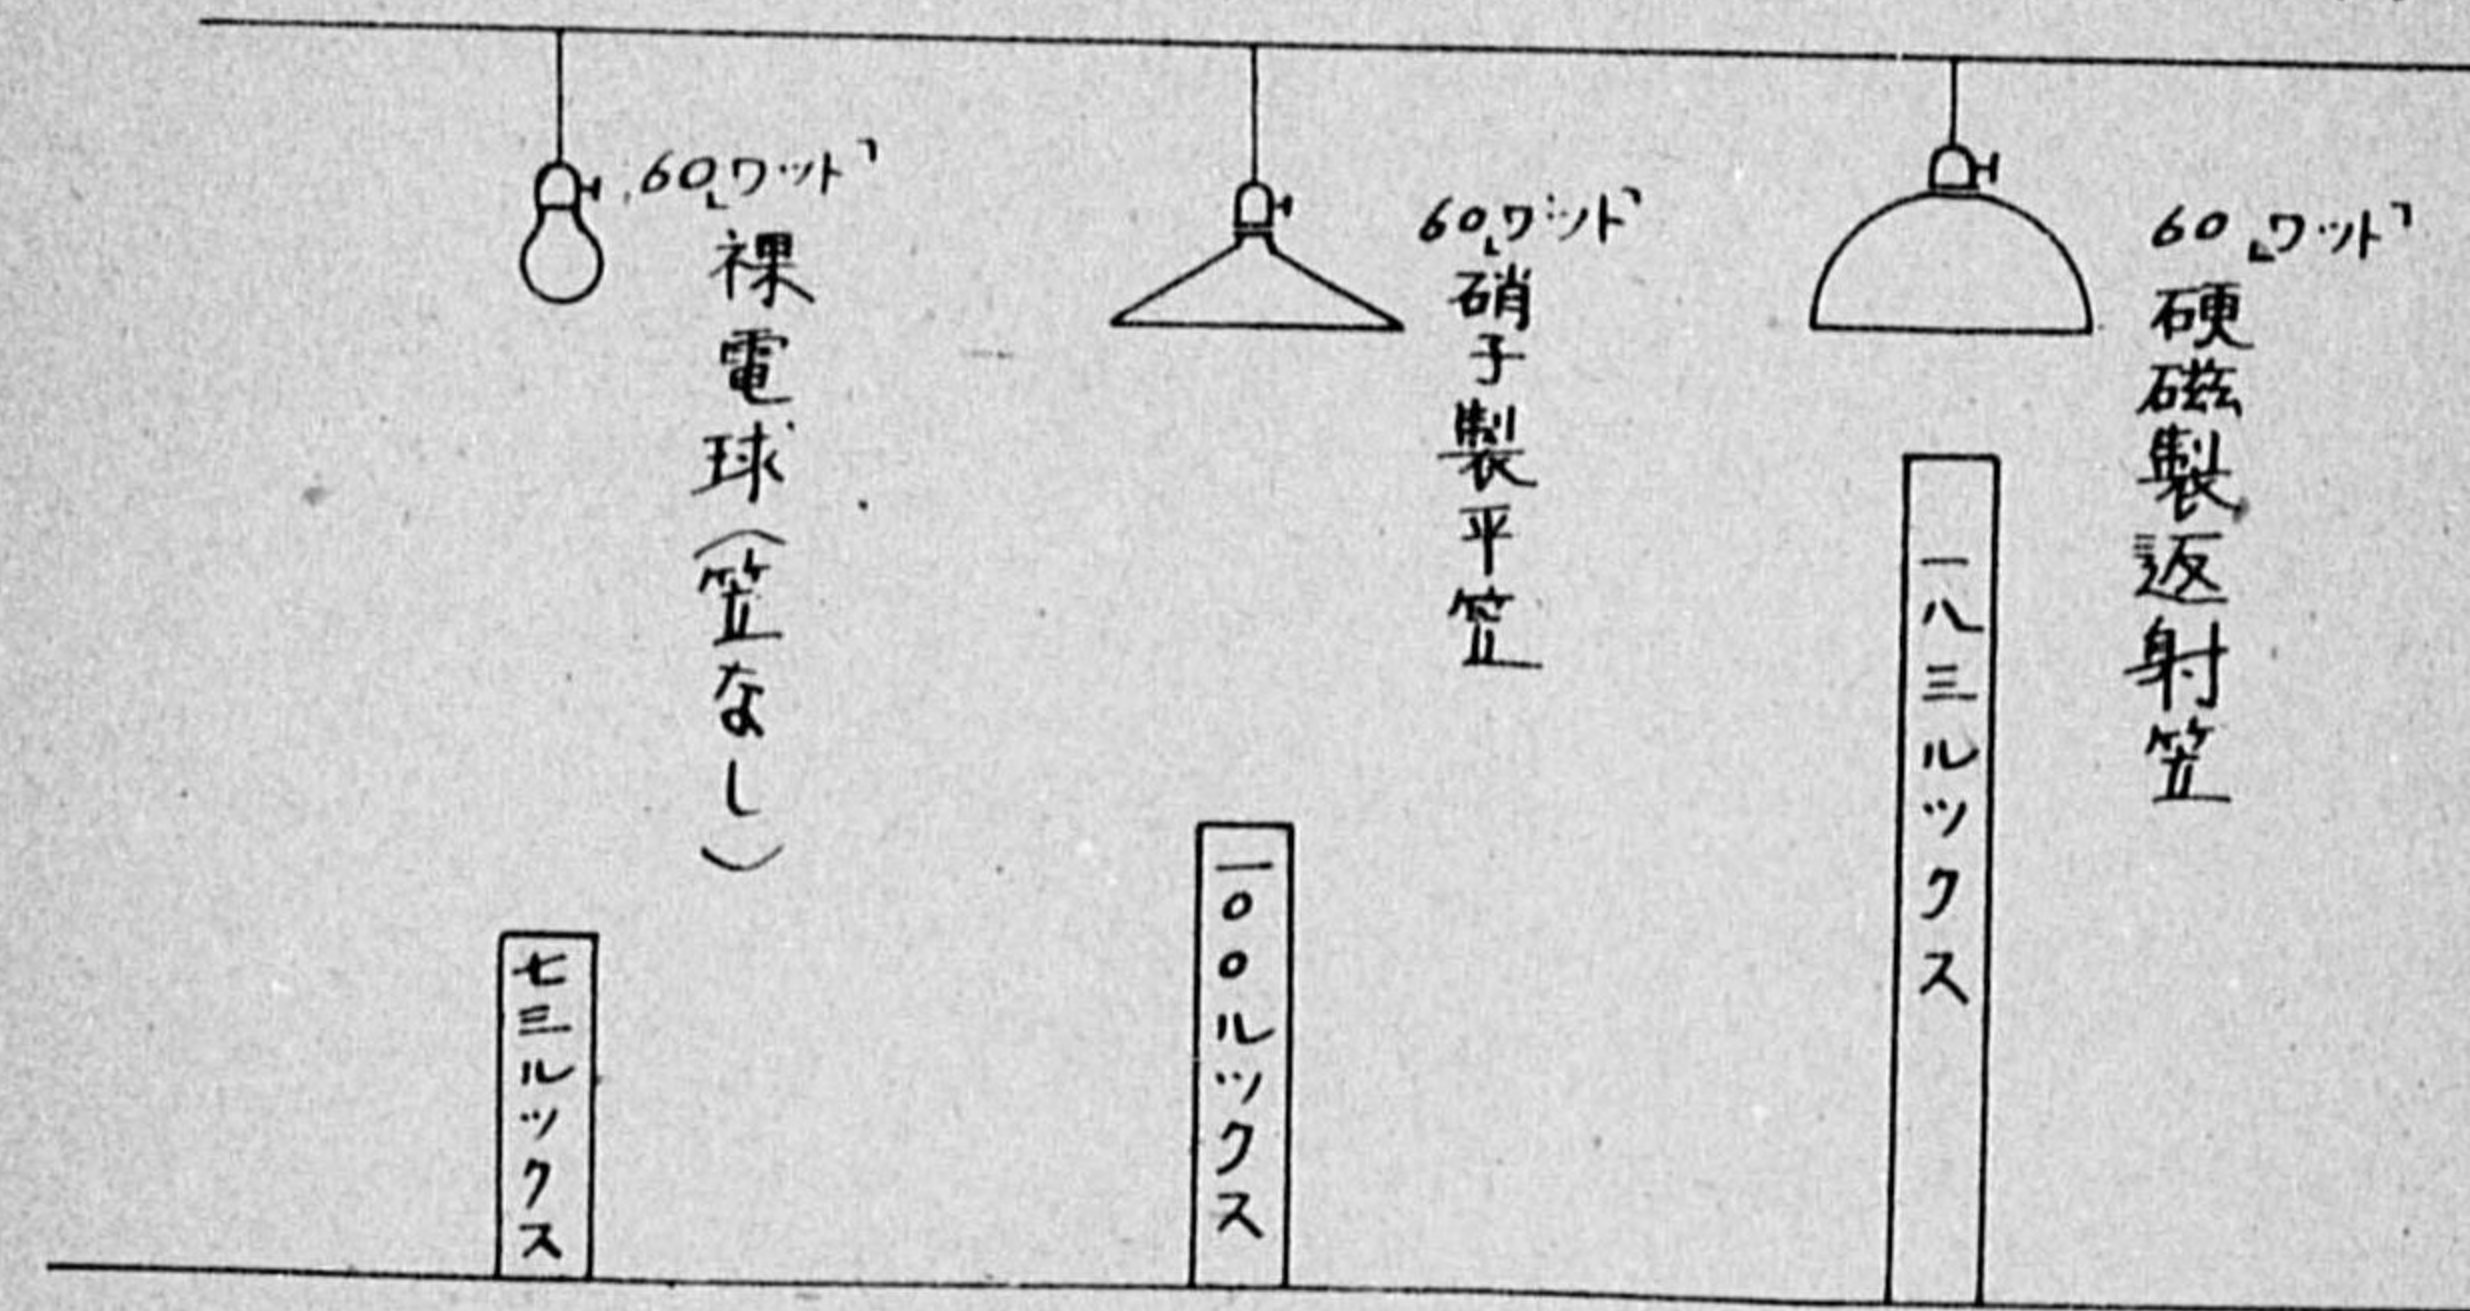 60「ワット」
裸電球(笠なし)
七三ルックス
60「ワット」
硝子製平笠
一〇〇ルックス
60「ワット」
硬磁製返射笠
一八三ルックス